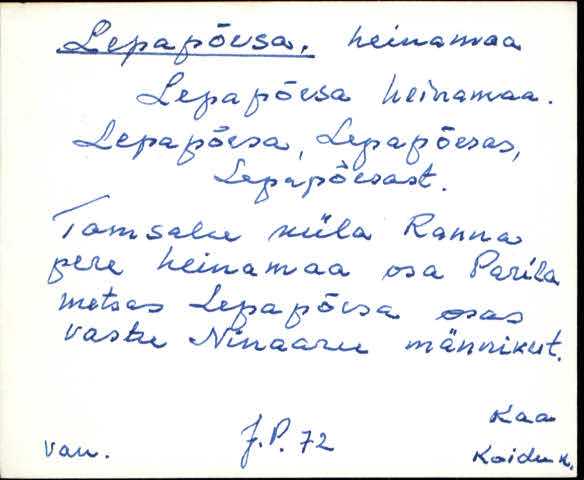 Lepapõesa. heinamaa
Lepapõesa heinamaa.
Lepapõesa, Lepapõesas,
Lepapõesast.
Tamsalu küla Ranna
pere heinamaa osa Parila
metsas Lepapõesa osas
vastu Ninaaru männikut.
Kaa
van. J.P. 72 Koidu k.